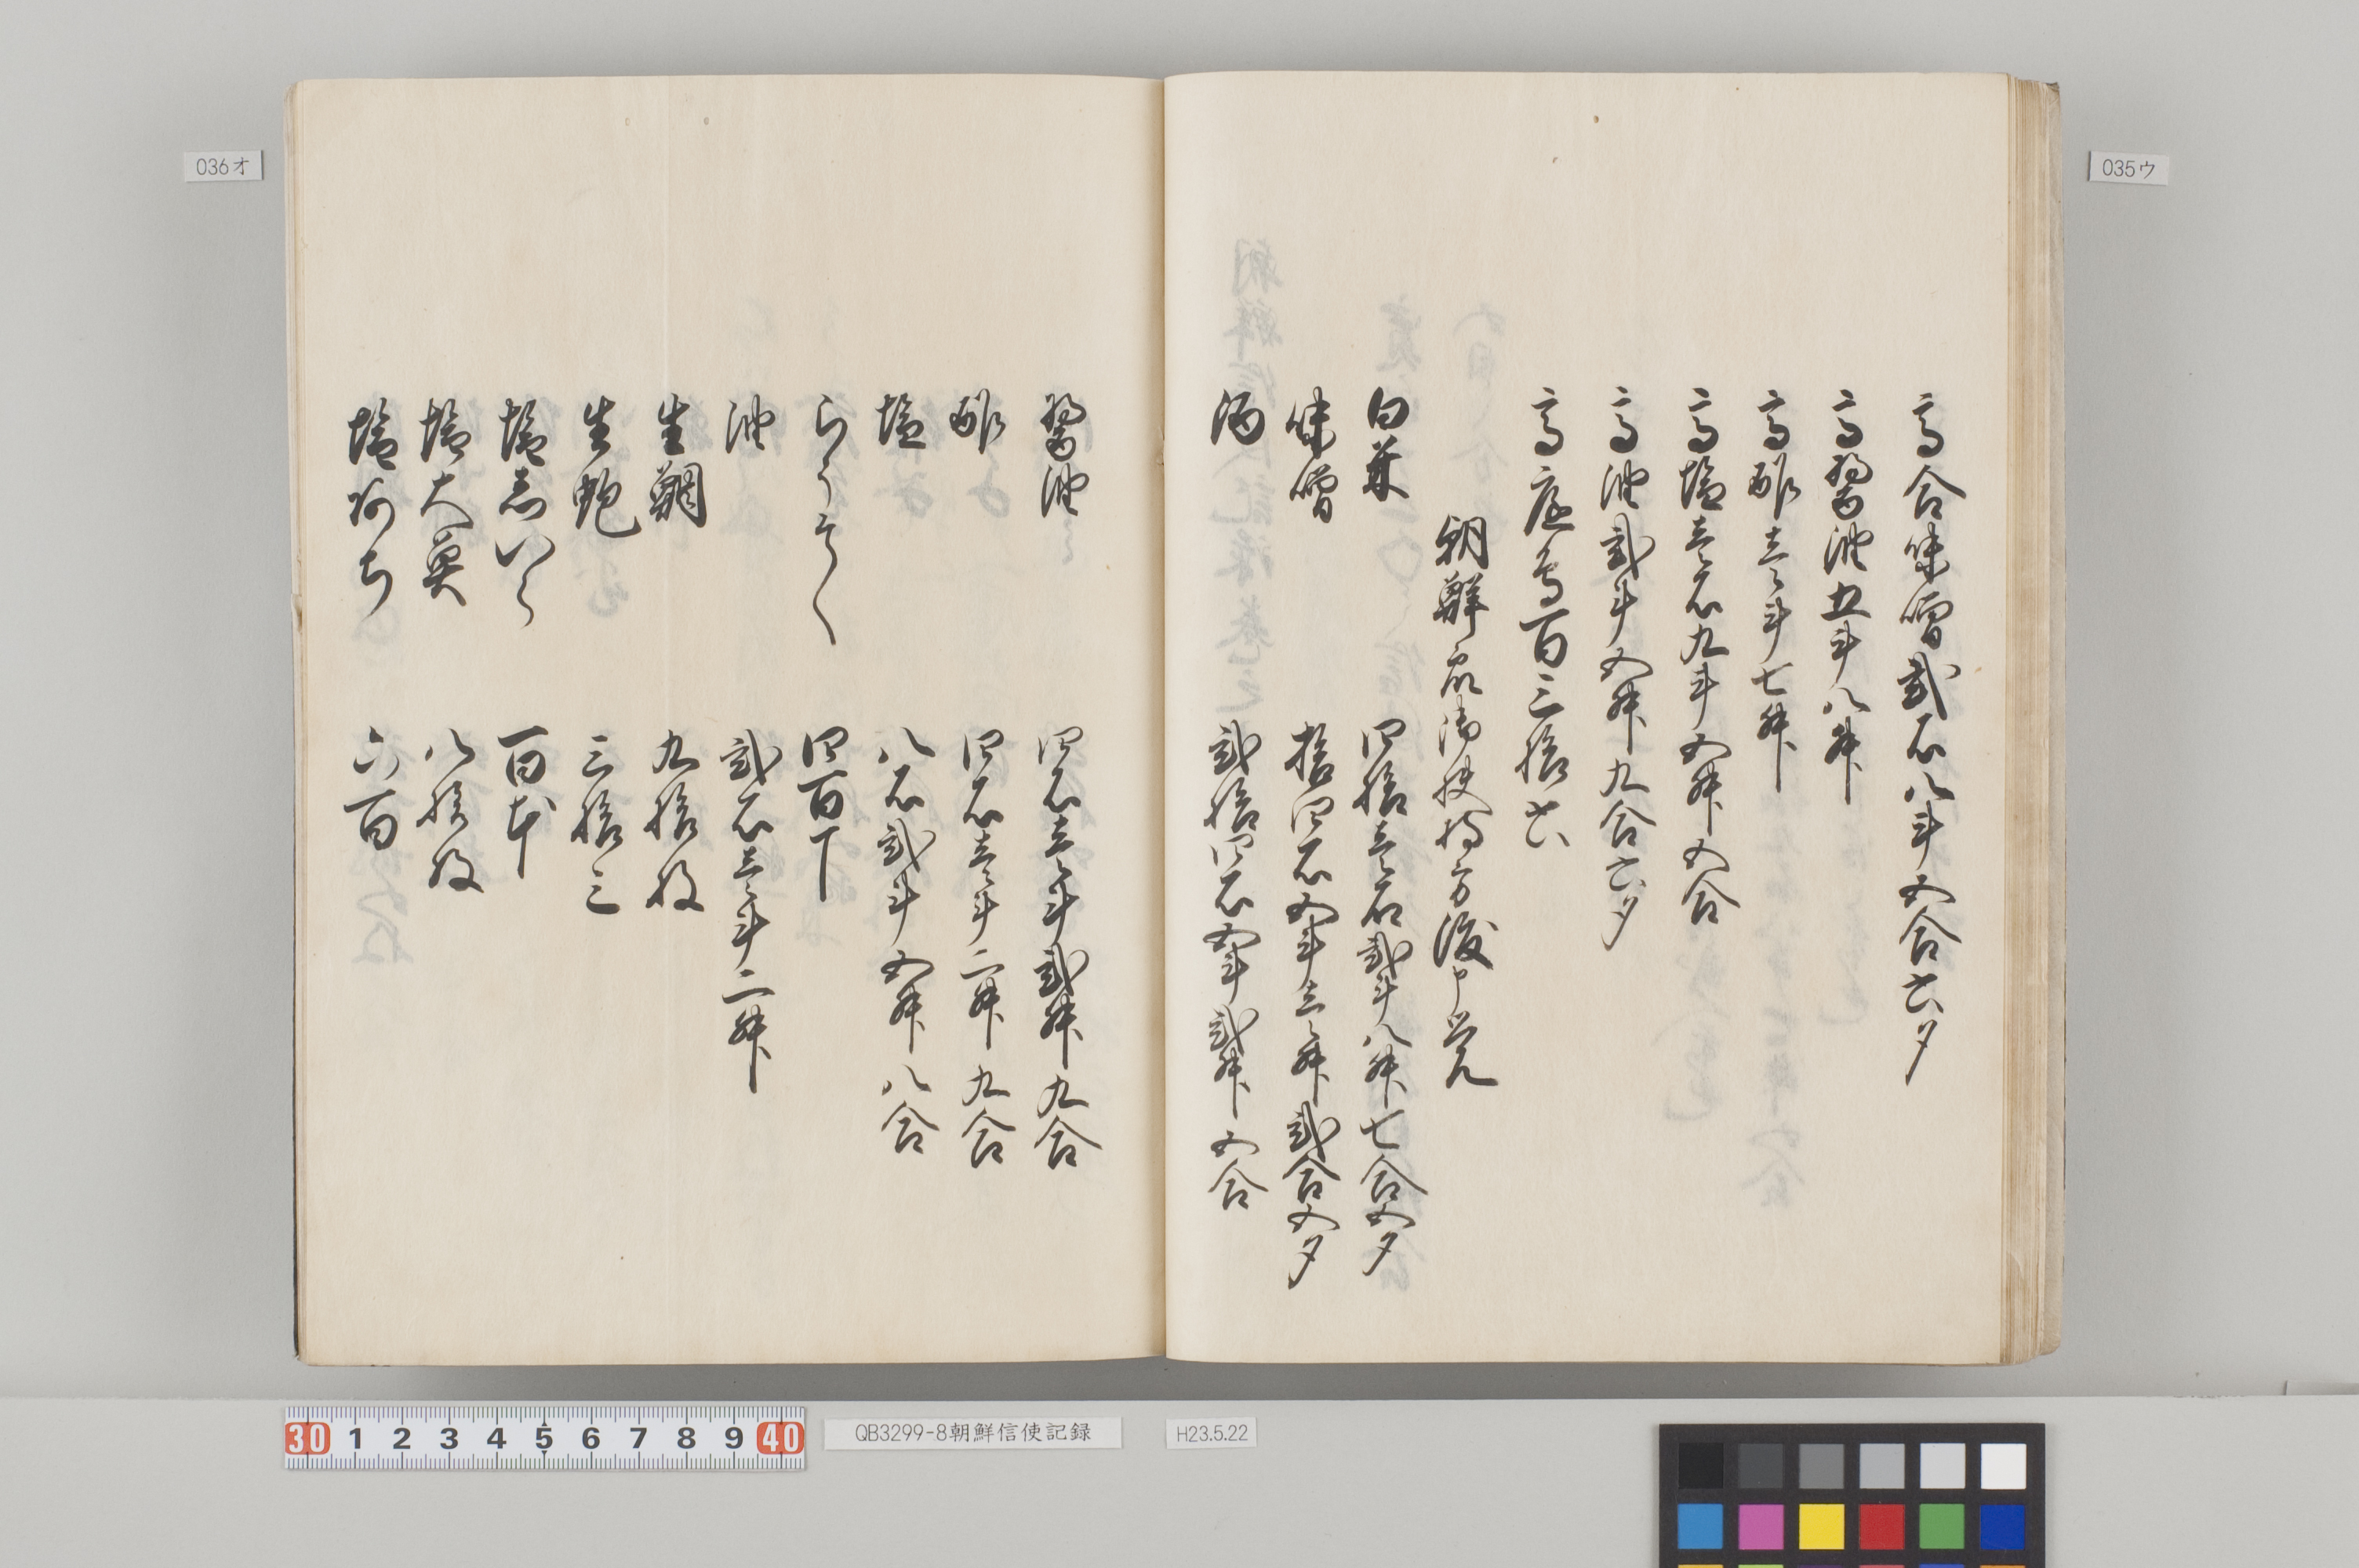 高合味噌弐石八斗五合六夕
高醤油五斗八升
高酢壱斗七升
高塩壱石九斗五升五合
高油弐斗五升九合六夕
高庭鳥百三拾六
朝鮮衆御扶持方渡申覚
白米 四拾壱石弐斗八升七合五夕
味噌 拾四石五斗壱升弐合五夕
酒 弐拾四石五斗弐升五合
醤油 四石壱斗弐升九合
酢 四石壱斗二升九合
塩 八石弐斗五升八合
らうそく 四百丁
油 弐石壱斗二升
生鯛 九拾枚
生鮑 三拾三
塩志いら 百本
塩大魚 八拾枚
塩あち 六百
035ウ
036オ
30 1 2 3 4 5 6 7 8 9 40
QB3299-8朝鮮信使記録
H23.5.22